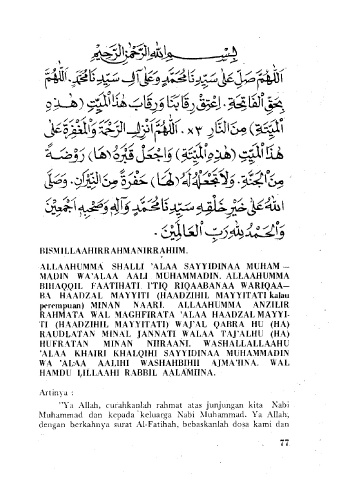 بِسْمِ اللهِ الرَّحْمٰنِ الرَّحِيْمِ
اَللّٰهُمَّ صَلِّ عَلٰى سَيِّدِنَا مُحَمَّدٍ وَعَلٰى آلِ سَيِّدِنَا مُحَمَّدٍ. اَللّٰهُمَّ
بِحَقِّ الْفَاتِحَةِ. اِعْتِقْ رِقَابَنَا وَرِقَابَ هٰذَا الْمَيِّتِ (هٰذِهِ
الْمَيِّتَةِ) مِنَ النَّارِ ٣×. اَللّٰهُمَّ اَنْزِلِ الرَّحْمَةَ وَالْمَغْفِرَةَ عَلٰى
هٰذَا الْمَيِّتِ (هٰذِهِ الْمَيِّتَةِ) وَاجْعَلْ قَبْرَهُ (هَا) رَوْضَةً
مِنَ الْجَنَّةِ. وَلَا تَجْعَلْهُ لَهُ (لَهَا) حُفْرَةً مِنَ النِّيْرَانِ. وَصَلَّى
اللهُ عَلٰى خَيْرِ خَلْقِهِ سَيِّدِنَا مُحَمَّدٍ وَآلِهِ وَصَحْبِهِ اَجْمَعِيْنَ
وَالْحَمْدُ لِلّٰهِ رَبِّ الْعَالَمِيْنَ.
BISMILLAAHIRRAHMANIRRAHIM.
ALLAAHUMMA SHALLI 'ALAA SAYYIDINAA MUHAM –
MADIN WA'ALAA AALI MUHAMMADIN. ALLAAHUMMA
BIHAQQIL FAATIHATI. I'TIQ RIQAABANAA WARIQAA–
BA HAADZAL MAYYITI (HAADZIHIL MAYYITATI kalau
perempuan) MINAN NAARI. ALLAAHUMMA ANZILIR
RAHMATA WAL MAGHFIRATA 'ALAA HAADZAL MAYYI-
TI (HAADZIHIL MAYYITATI) WAJ'AL QABRA HU (HA)
RAUDLATAN MINAL JANNATI WALAA TAJ'ALHU (HA)
HUFRATAN MINAN NIIRAANI. WASHALLALLAAHU
'ALAA KHAIRI KHALQIHI SAYYIDINAA MUHAMMADIN
WA 'ALAA AALIHI WASHAHBIHII AJMA'IINA. WAL
HAMDU LILLAAHI RABBIL AALAMIINA.
Artinya :
"Ya Allah, curahkanlah rahmat atas junjungan kita Nabi
Muhammad dan kepada keluarga Nabi Muhammad. Ya Allah,
dengan berkahnya surat Al-Fatihah, bebaskanlah dosa kami dan
77